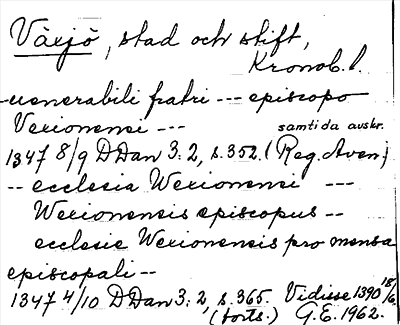 Växjö, stad och stift,
Kronob. l.
-uenerabili fratri --- episcopo
Vexionensi ---
samtida avskr.
1347 8/9 DDan 3:2, s.352. (Reg. Aven.)
-- ecclesia Wexionensi ---
Wexionensis episcopus --
ecclesie Wexionensis pro mensa
episcopali --
1347 4/10 DDan 3:2, s.365. Vidisse 1390 18/6.
(forts.) G.E. 1962.